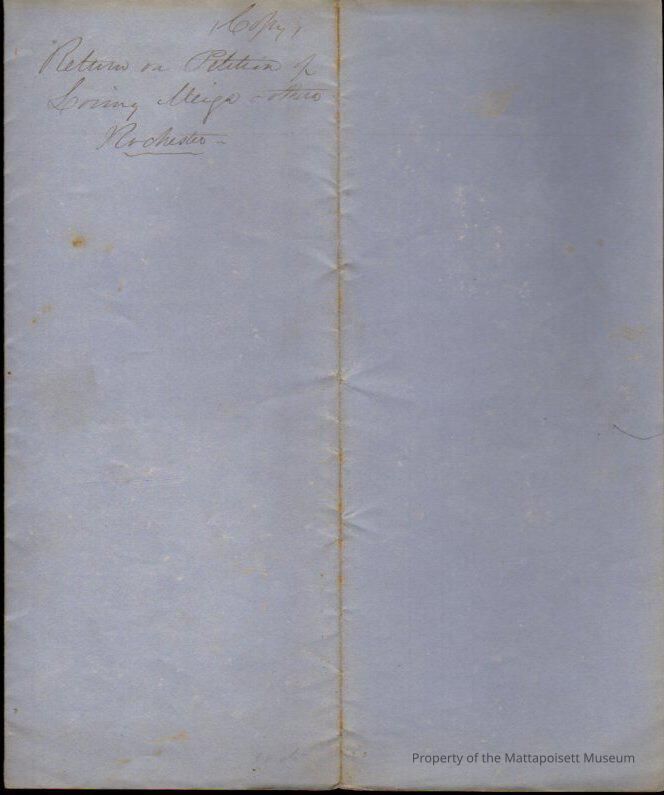 (Copy)
Return on Petition of
Loring Meigs & others
Rochester
Property of the Mattapoisett Museum